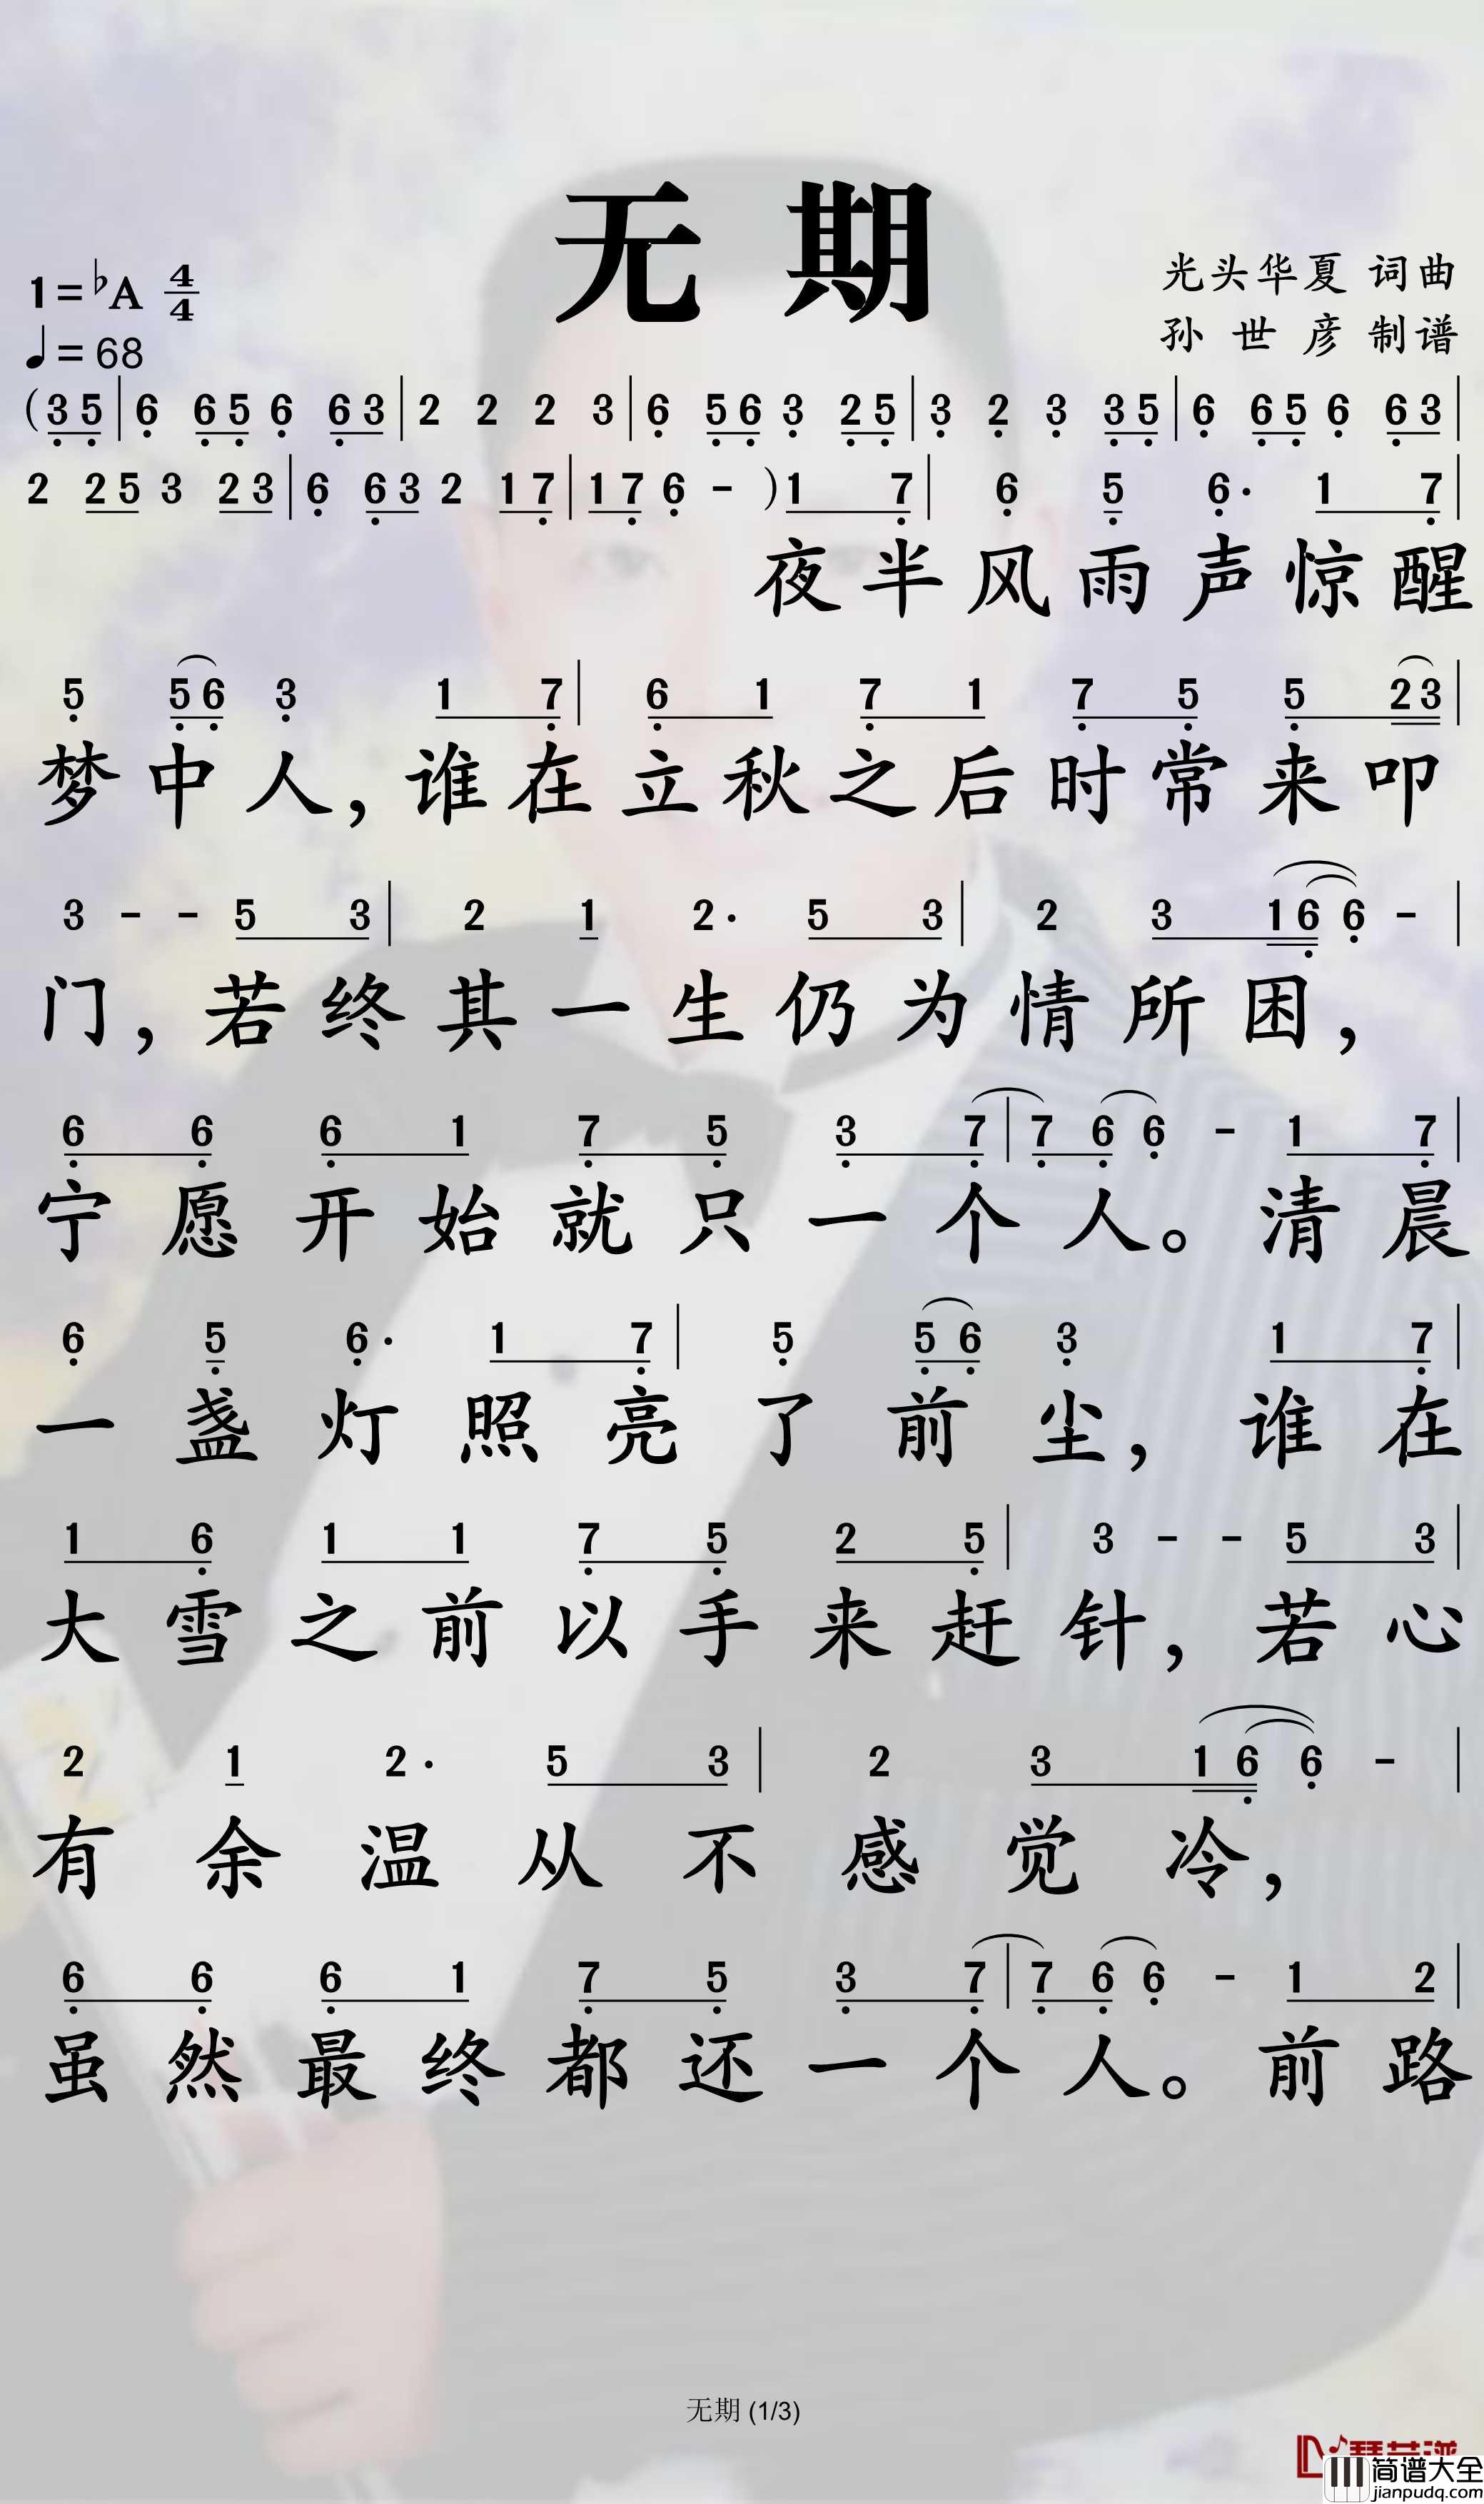 无期
1=♭A 4/4
♩=68
光头华夏 词曲
孙世彦 制谱
(3 5 | 6 6 5 6 6 3 | 2 2 2 3 | 6 5 6 3 2 5 | 3 2 3 3 5 | 6 6 5 6 6 3 |
2 2 5 3 2 3 | 6 6 3 2 1 7 | 1 7 6 - ) 1 7 | 6 5 6· 1 7 |
夜半风雨声惊醒
5 5 6 3 1 7 | 6 1 7 1 7 5 5 2 3 |
梦中人，谁在立秋之后时常来叩
3 - - 5 3 | 2 1 2· 5 3 | 2 3 1 6 6 - |
门，若终其一生仍为情所困，
6 6 6 1 7 5 3 7 | 7 6 6 - 1 7 |
宁愿开始就只一个人。清晨
6 5 6· 1 7 | 5 5 6 3 1 7 |
一盏灯照亮了前尘，谁在
1 6 1 1 7 5 2 5 | 3 - - 5 3 |
大雪之前以手来赶针，若心
2 1 2· 5 3 | 2 3 1 6 6 - |
有余温从不感觉冷，
6 6 6 1 7 5 3 7 | 7 6 6 - 1 2 |
虽然最终都还一个人。前路
无期 (1/3)
简谱大全
jianpudq.com